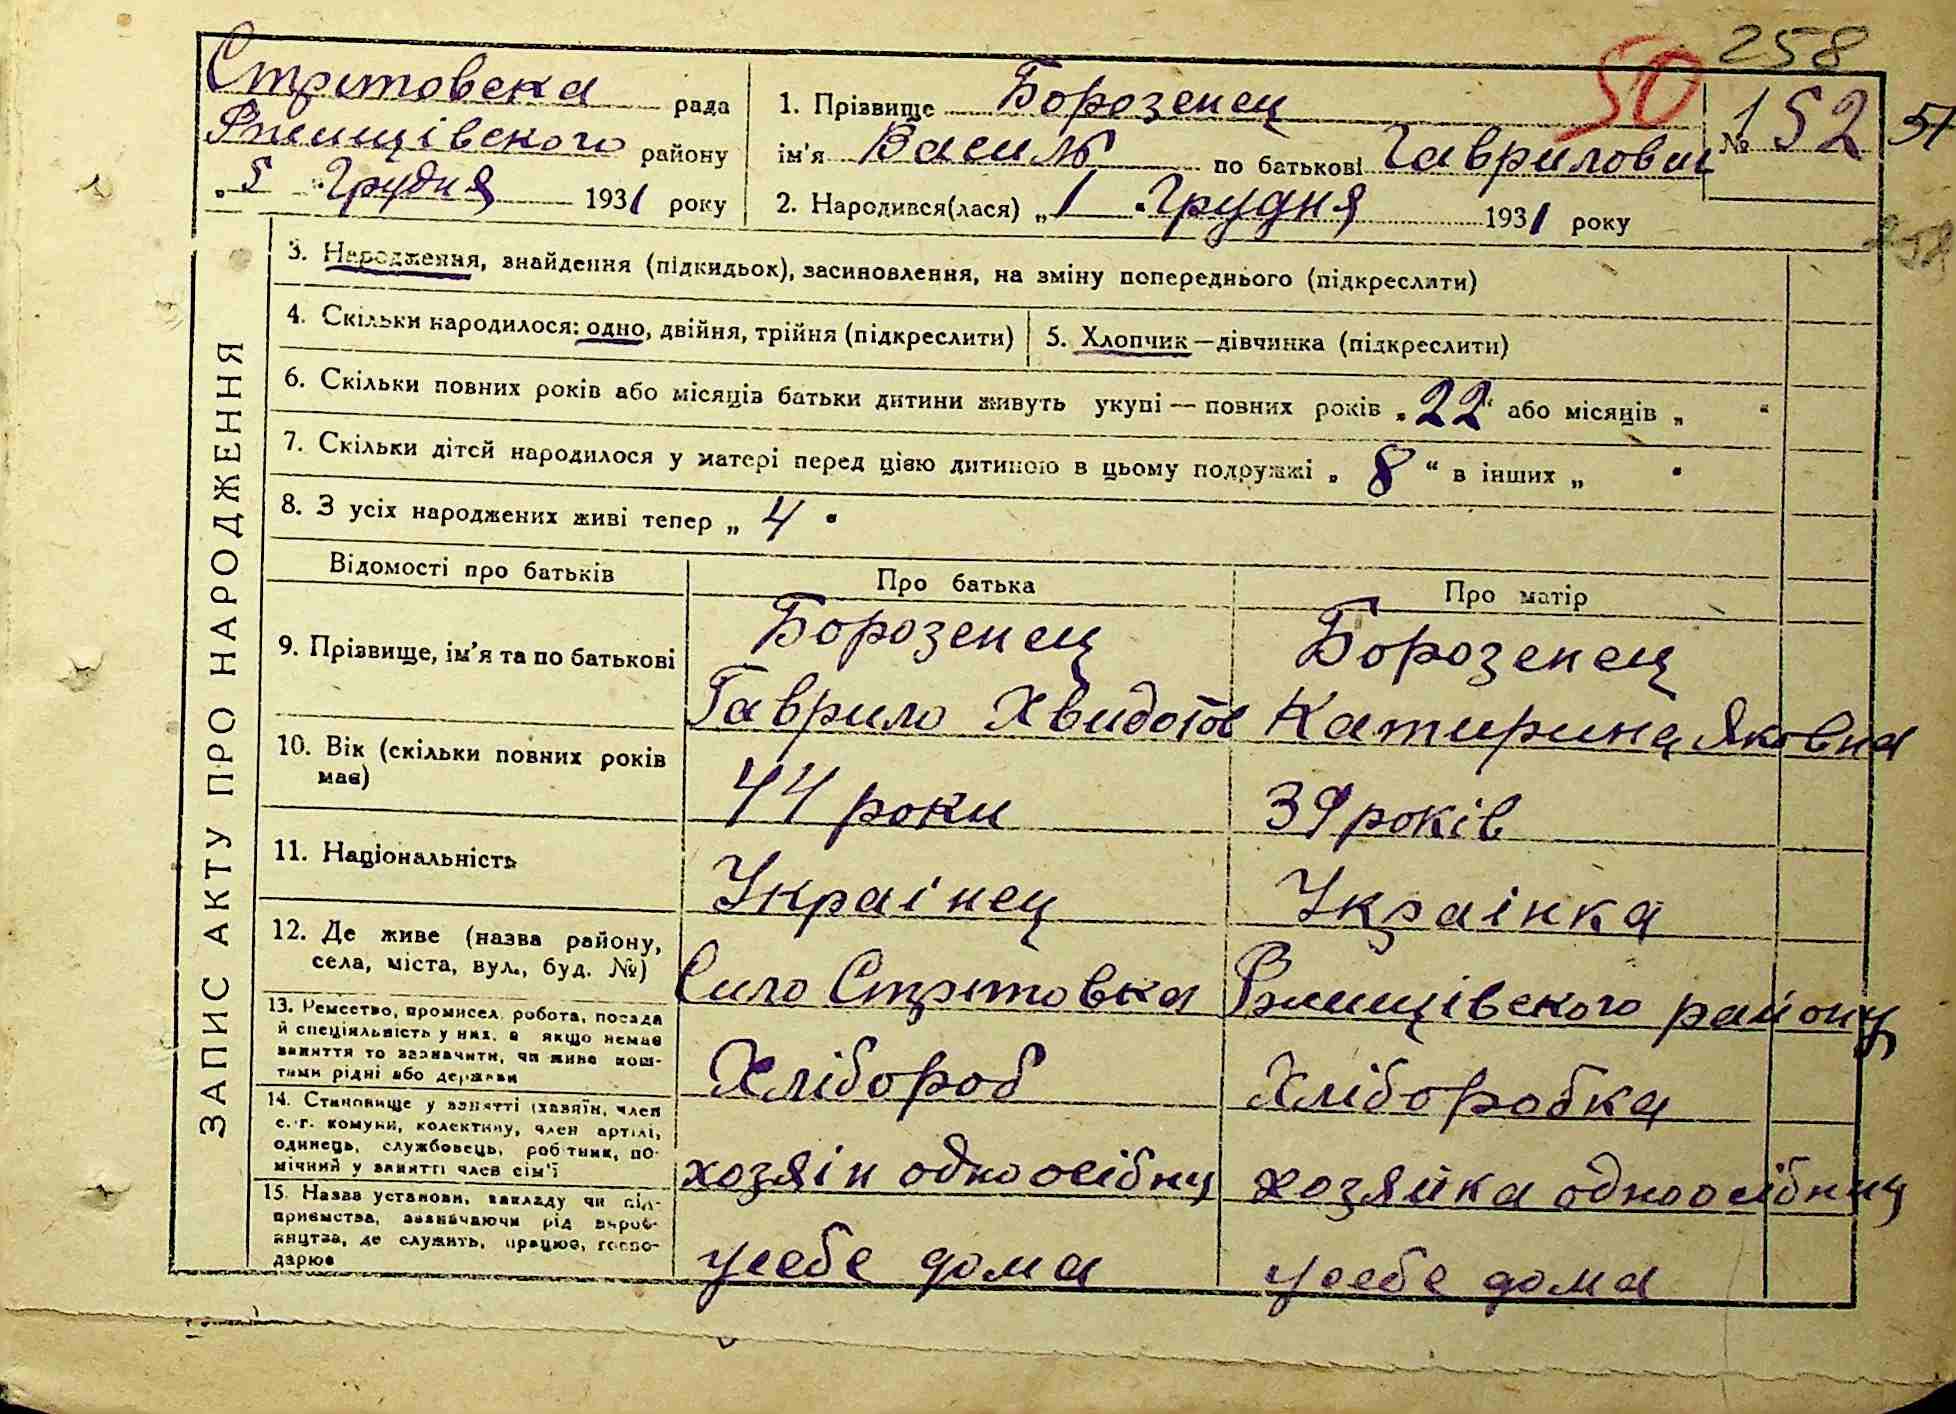 258
50
Стрітовска рада
Ржищівского району
„5" Грудня 1931 року
1. Прізвище Борозенец
ім'я Василь по батькові Гаврилович
№ 152
51
2. Народився(лася) „1" Грудня 1931 року
258
ЗАПИС АКТУ ПРО НАРОДЖЕННЯ
3. Народження, знайдення (підкидьок), засиновлення, на зміну попереднього (підкреслити)
4. Скільки народилося: одно, двійня, трійня (підкреслити)
5. Хлопчик—дівчинка (підкреслити)
6. Скільки повних років або місяців батьки дитини живуть укупі — повних років „22" або місяців „ "
7. Скільки дітей народилося у матері перед цією дитиною в цьому подружжі „8" в інших „ "
8. З усіх народжених живі тепер „4"
Відомості про батьків
Про батька
Про матір
9. Прізвище, ім'я та по батькові
Борозенец
Гаврило Хвидотов
Борозенец
Катирина Яковна
10. Вік (скільки повних років
має)
44 роки
39 років
11. Національність
Украінец
Украінка
12. Де живе (назва району,
села, міста, вул., буд. №)
Сило Стрітовка Ржищівского району
13. Ремество, промисел, робота, посада
й спеціяльність у них, а якщо немає
заняття то зазначити, чи живе кош-
тами рідні або держави
Хлібороб
Хліборобка
14. Становище у занятті (хазяїн, член
с.-г. комуни, колективу, член артілі,
одинець, службовець, робітник, по-
мічний у занятті член сім'ї
хозяін одноосібниц
хозяйка одноосібниц
15. Назва установи, закладу чи під-
приємства, зазначаючи рід вироб-
ництва, де служить, працює, госпо-
дарює
усебе дома
усебе дома